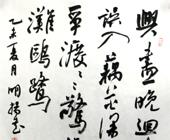 興盡晚迴
誤入藕花深
爭渡〻驚
灘鷗鷺
乙未夏月明揚書